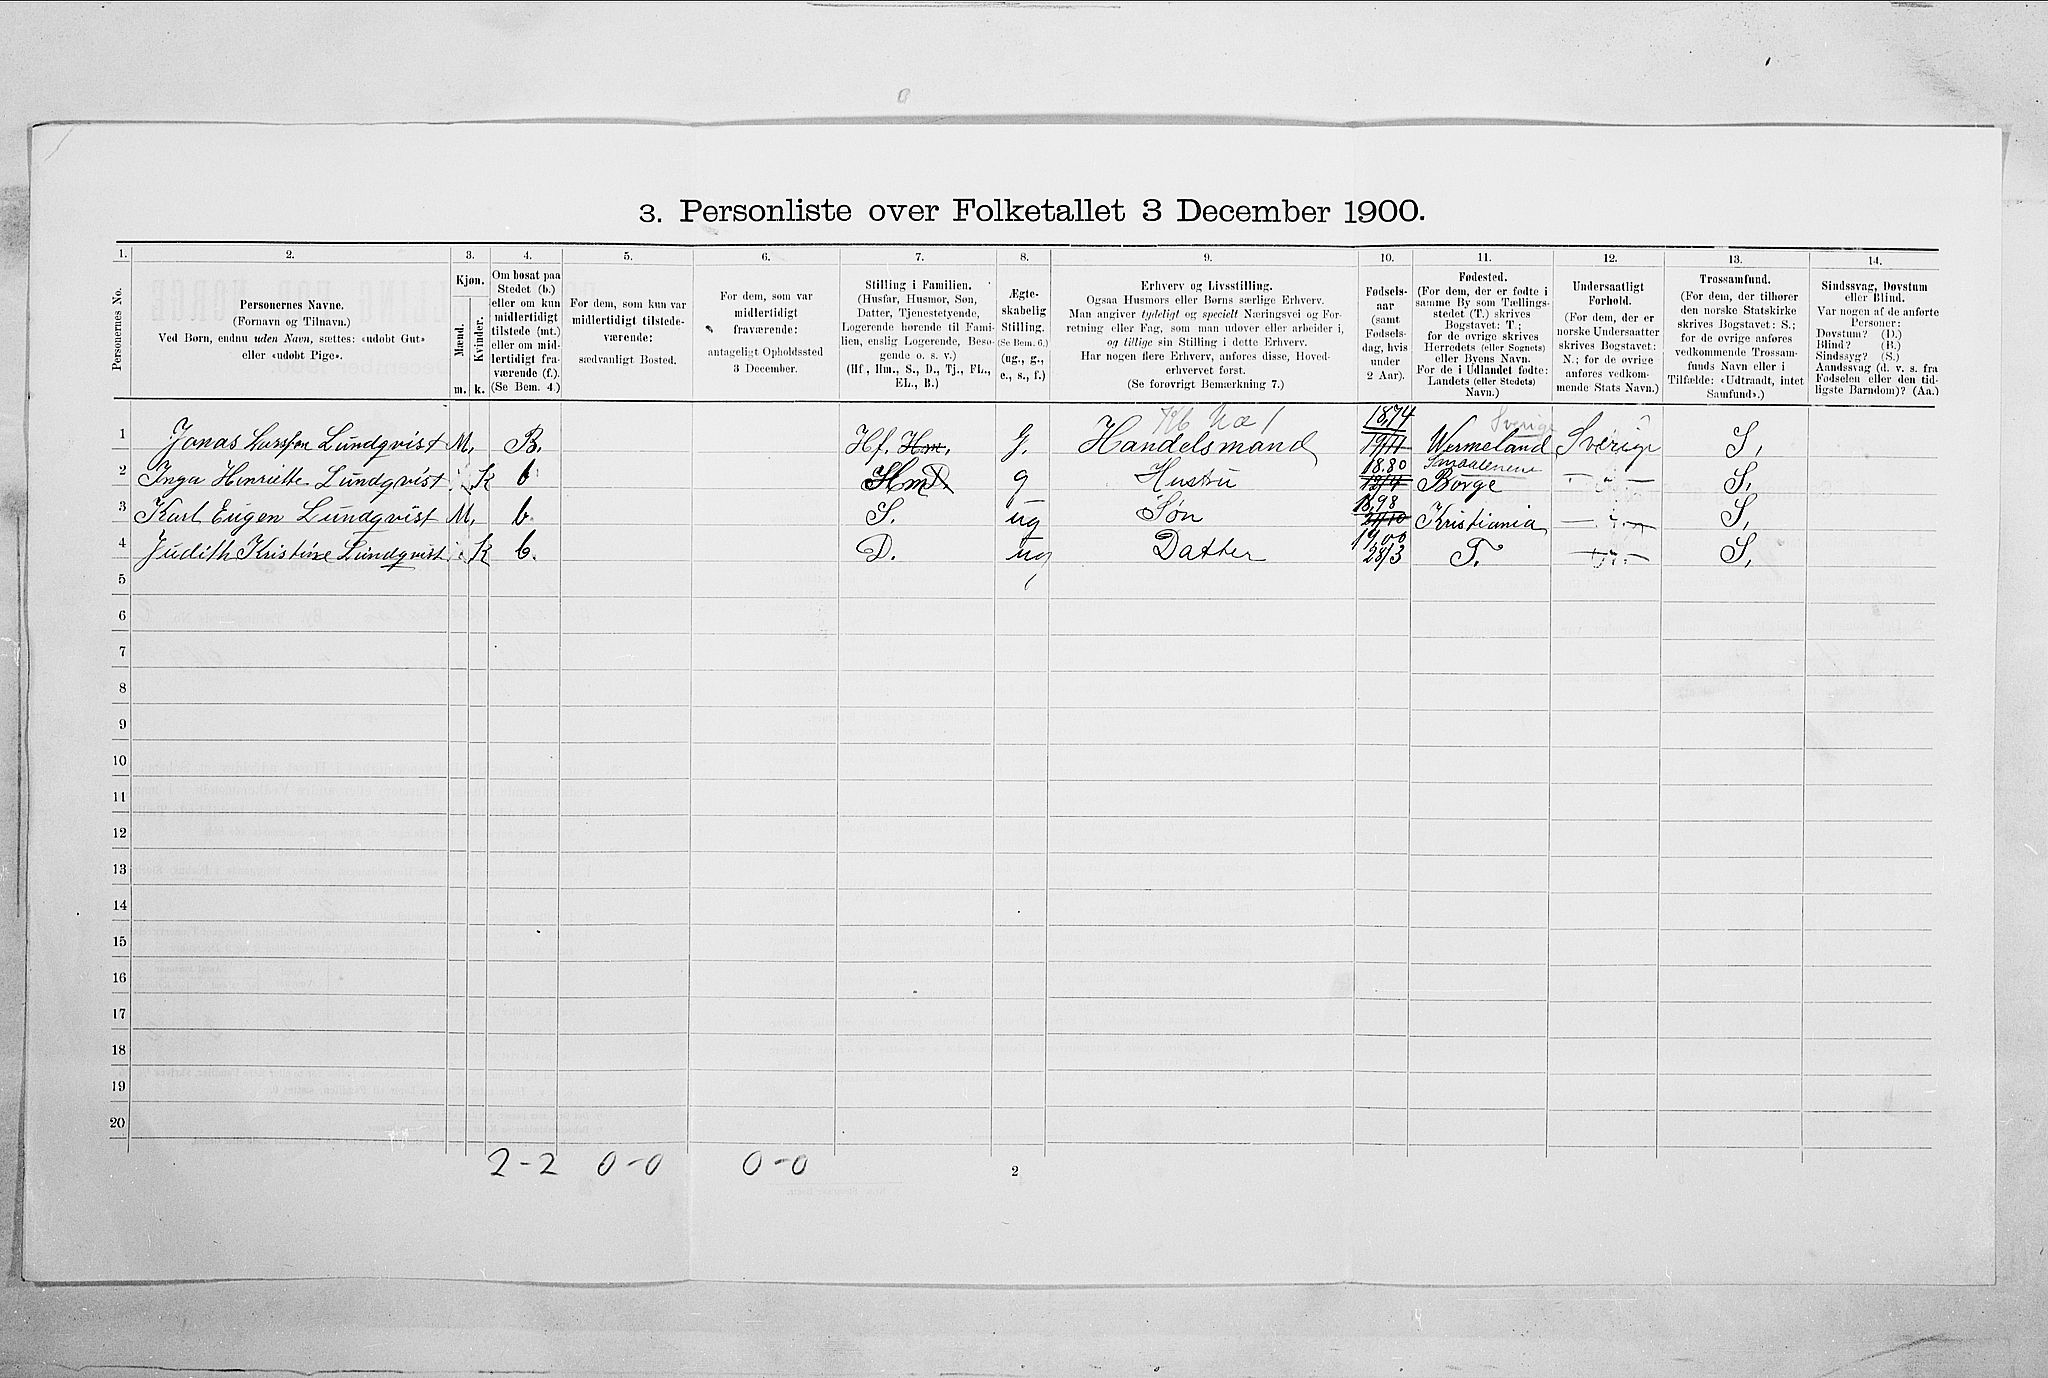 3. Personliste over Folketallet 3 December 1900.
1. 2. 3. 4. 5. 6. 7. 8. 9. 10. 11. 12. 13. 14.
Personernes No.
Personernes Navne.
(Fornavn og Tilnavn.)
Ved Børn, endnu uden Navn, sættes: «udøbt Gut»
eller «udøbt Pige».
Kjøn.
Mænd.
Kvinder.
m. k.
Om bosat paa
Stedet (b.)
eller om kun
midlertidigt
tilstede (mt.)
eller om mid-
lertidigt fra-
værende (f.).
(Se Bem. 4.)
For dem, som kun var
midlertidigt tilstede-
værende:
sædvanligt Bosted.
For dem, som var
midlertidigt
fraværende:
antageligt Opholdssted
3 December.
Stilling i Familien.
(Husfar, Husmor, Søn,
Datter, Tjenestetyende,
Logerende hørende til Fami-
lien, enslig Logerende, Besø-
gende o. s. v.)
(Hf, Hm., S., D., Tj., FL.,
EL., B.)
Ægte-
skabelig
Stilling.
(Se Bem. 6.)
(ug., g.,
e., s., f.)
Erhverv og Livsstilling.
Ogsaa Husmors eller Børns særlige Erhverv.
Man angiver tydeligt og specielt Næringsvei og For-
retning eller Fag, som man udøver eller arbeider i,
og tillige sin Stilling i dette Erhverv.
Har nogen flere Erhverv, anføres disse, Hoved-
erhvervet først.
(Se forøvrigt Bemærkning 7.)
Fødsels-
aar
(samt
Fødsels-
dag, hvis
under
2 Aar).
Fødested.
(For dem, der er fødte i
samme By som Tællings-
stedet (T.) skrives
Bogstavet: T.;
for de øvrige skrives
Herredets (eller Sognets)
eller Byens Navn.
For de i Udlandet fødte:
Landets (eller Stedets)
Navn.)
Undersaatligt
Forhold.
(For dem, der er
norske Undersaatter
skrives Bogstavet:
N.; for de øvrige
anføres vedkom-
mende Stats Navn.)
Trossamfund.
(For dem, der tilhører
den norske Statskirke
skrives Bogstavet: S.;
for de øvrige anføres
vedkommende Trossam-
funds Navn eller i
Tilfælde: «Udtraadt, intet
Samfund».)
Sindssvag, Døvstum
eller Blind.
Var nogen af de anførte
Personer:
Døvstum? (D.)
Blind? (B.)
Sindssyg? (S.)
Aandssvag (d. v. s. fra
Fødselen eller den tid-
ligste Barndom)? (Aa.)
1 Jonas Larssen Lundqvist M. B. Hf. Hm. G. Handelsmand 1874 19/11 Sverige Wermeland Sverige S.
2 Inga Henriette Lundqvist K b Hm D. g Hustru 1880 12/4 Smaalenene Borge — " — S.
3 Karl Eugen Lundqvist M. b. S. ug Søn 1898 Kristiania — " — S.
4 Judith Kristine Lundqvist K b. D. ug Datter 1900 28/3 T. — " — S.
5
6
7
8
9
10
11
12
13
14
15
16
17
18
19
20
2-2 0-0 0-0
2